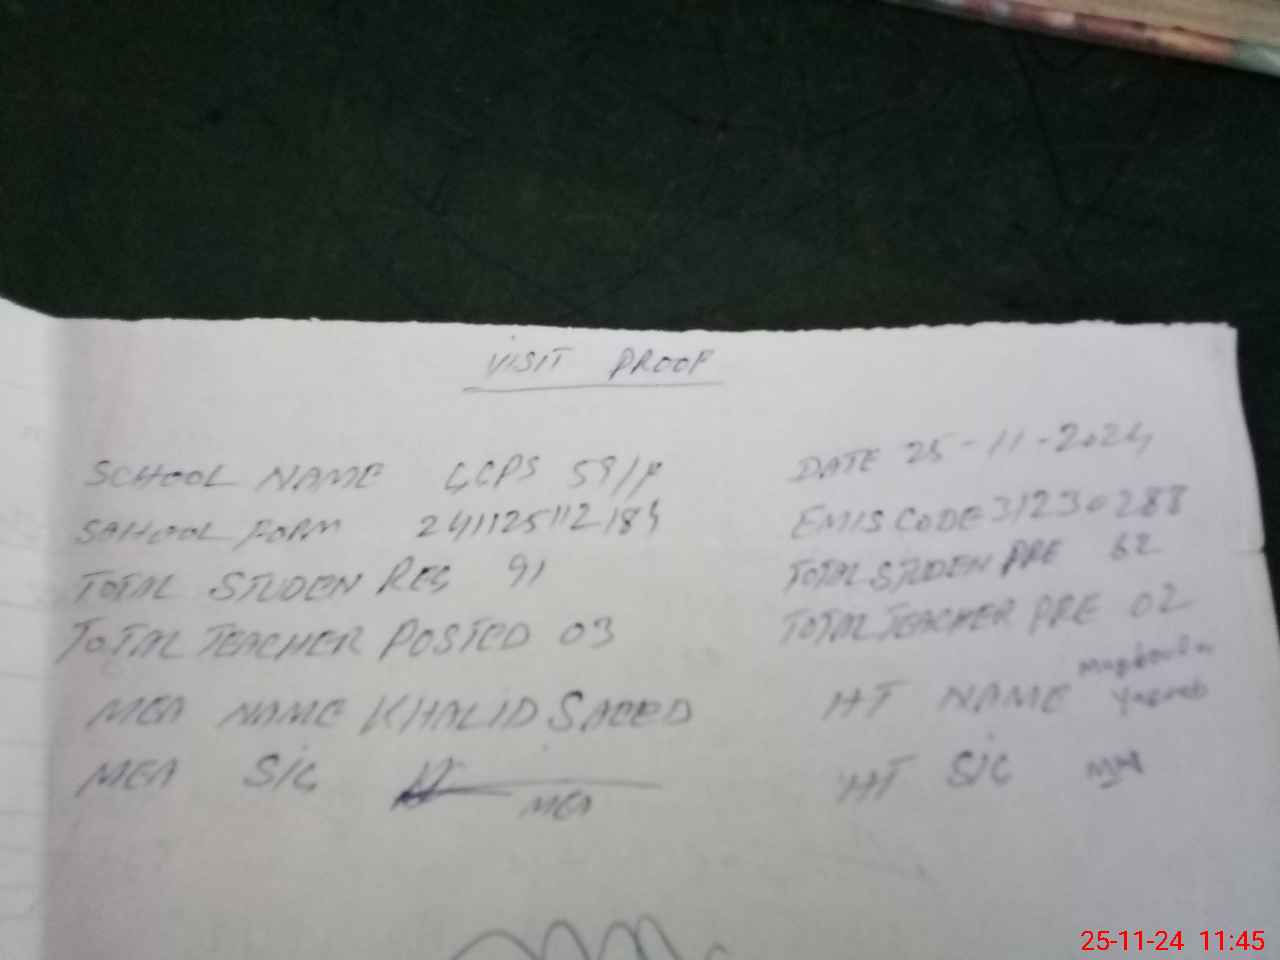 VISIT PROOF
SCHOOL NAME GCPS 59/P DATE 25-11-2024
SAHOOL FORM 241125112184 EMIS CODE 31230288
TOTAL STUDEN REG 91 TOTAL STUDEN PRE 62
TOTAL TEACHER POSTED 03 TOTAL TEACHER PRE 02
MEA NAME KHALID SAEED HT NAME
MEA SIG MEA HT SIG
25-11-24 11:45